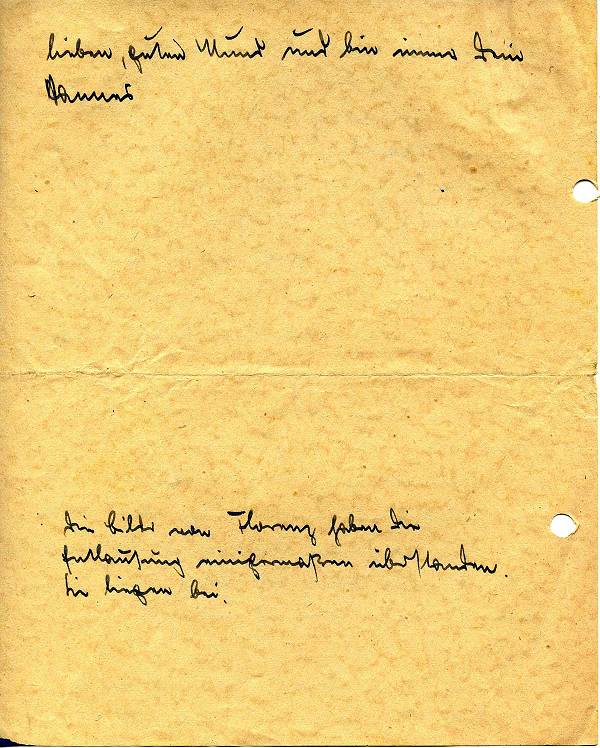 lieben, guten Mund und bin immer Dein
Hannes
Die Bilder von Florenz haben die
Entlausung einigermaßen überstanden.
Sie liegen bei.